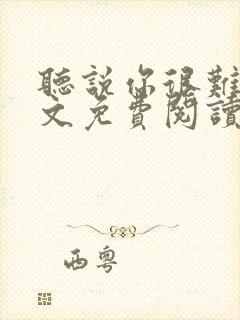 聽說你很難
文免費閱讀
西粵